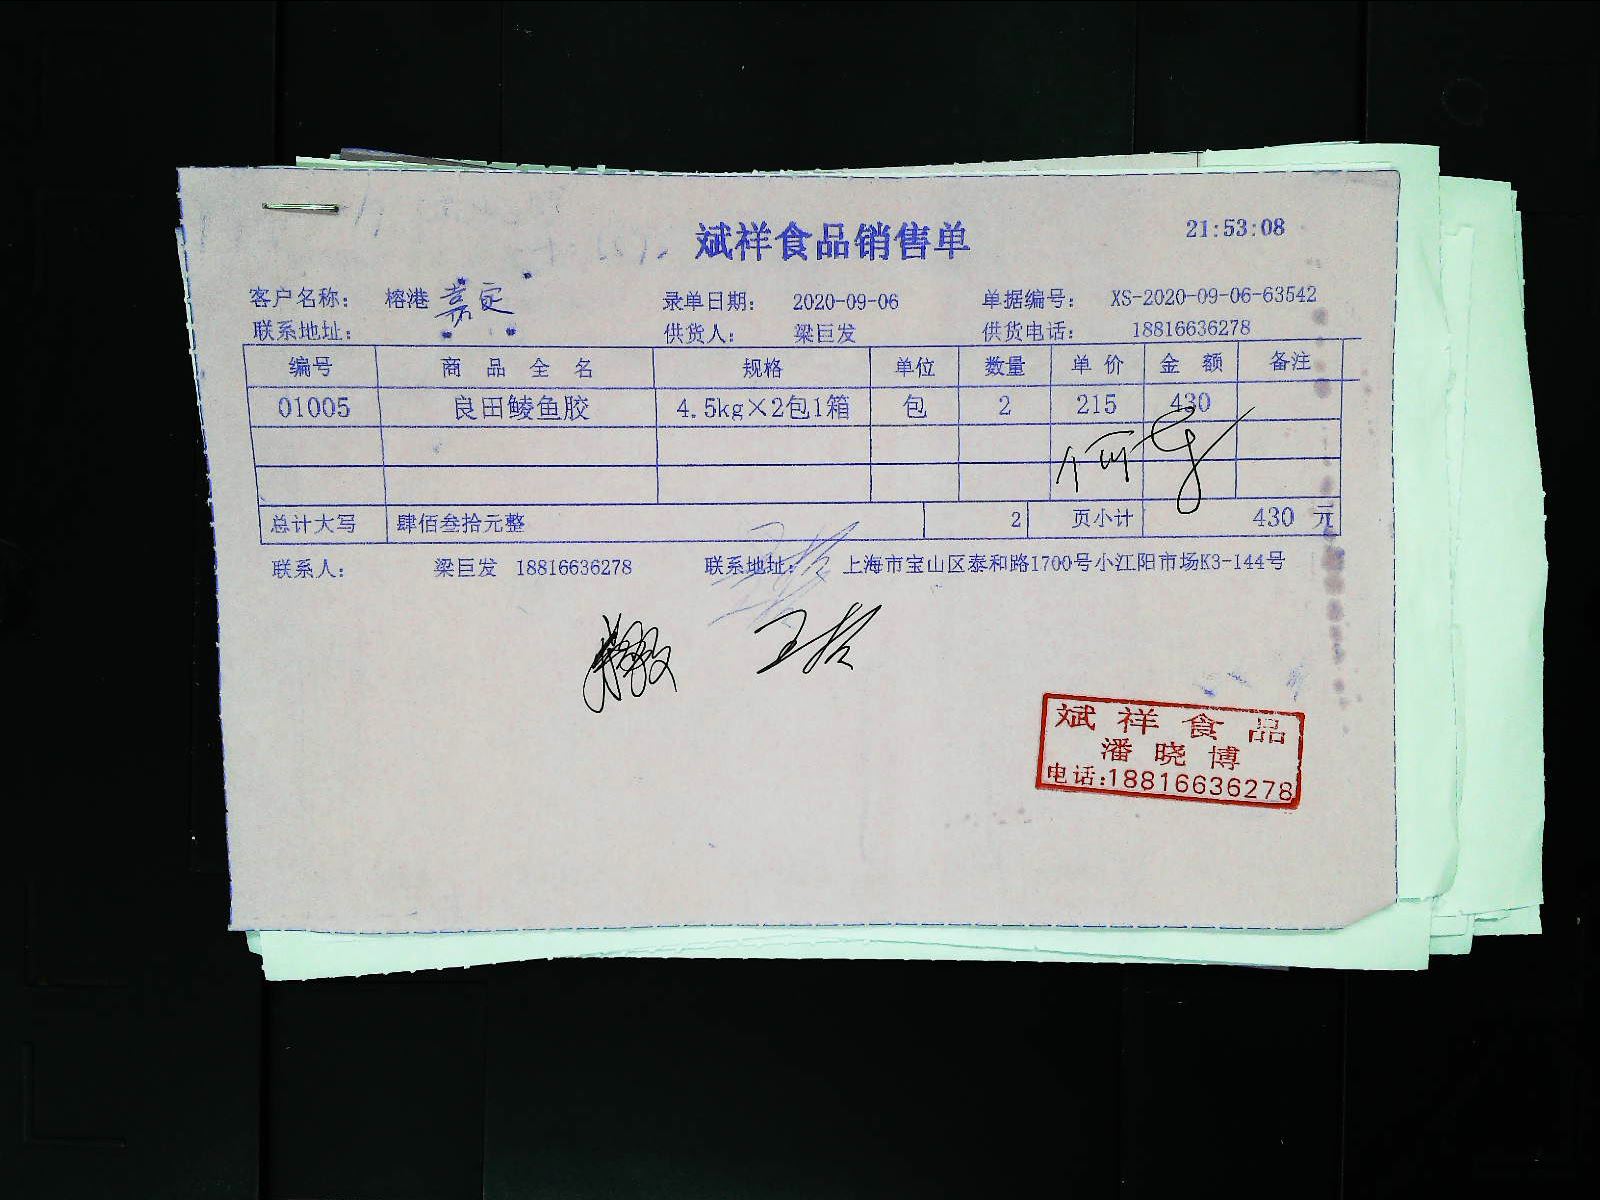 斌祥食品销售单 21:53:08
客户名称： 榕港 嘉定 录单日期： 2020-09-06 单据编号： XS-2020-09-06-63542
联系地址： 供货人： 梁巨发 供货电话： 18816636278
编号 商品全名 规格 单位 数量 单价 金额 备注
01005 良田鲮鱼胶 4.5kg×2包1箱 包 2 215 430
总计大写 肆佰叁拾元整 2 页小计 430 元
联系人： 梁巨发 18816636278 联系地址： 上海市宝山区泰和路1700号小江阳市场K3-144号
斌祥食品
潘晓博
电话:18816636278